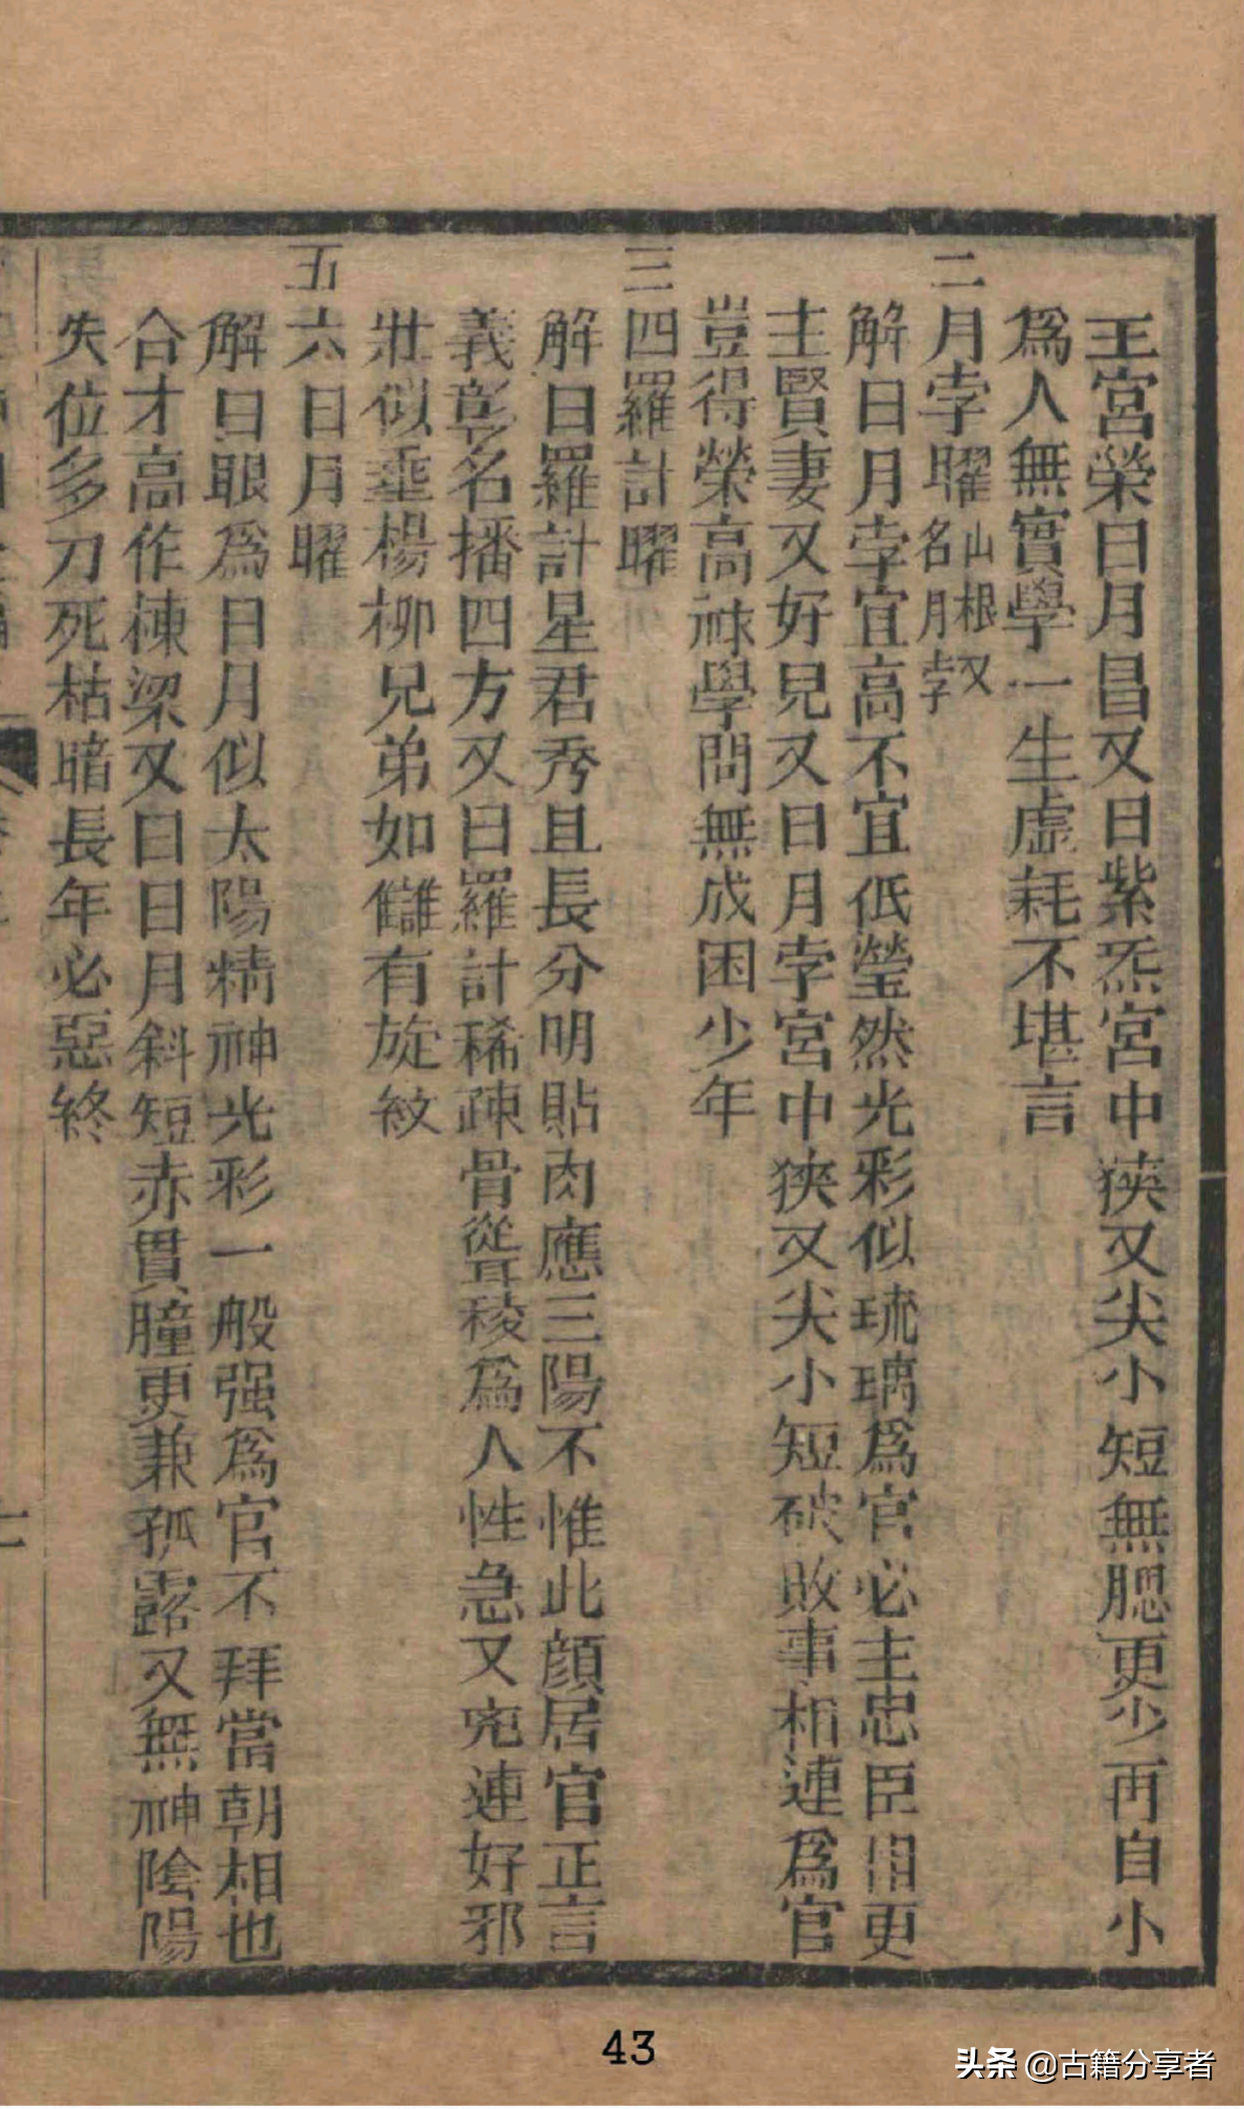 王宮榮日月昌又曰紫炁宮中狹又尖小短無腮更少再自小
爲人無實學一生虛耗不堪言
二月孛曜山根又名月孛
解曰月孛宜高不宜低瑩然光彩似琉璃爲官必主忠臣相更
主賢妻又好兒又曰月孛宮中狹又尖小短破敗事相連爲官
豈得榮高祿學問無成困少年
三四羅計曜
解曰羅計星君秀且長分明貼肉應三陽不惟此顏居官正言
義彰名播四方又曰羅計稀疎骨從聳稜爲人性急又兇連好邪
壯似垂楊柳兄弟如讎有旋紋
五六日月曜
解曰眼爲日月似太陽精神光彩一般强爲官不拜當朝相也
合才高作棟梁又曰日月斜短赤貫瞳更兼孤露又無神陰陽
失位多刀死枯暗長年必惡終
43
头条 @古籍分享者